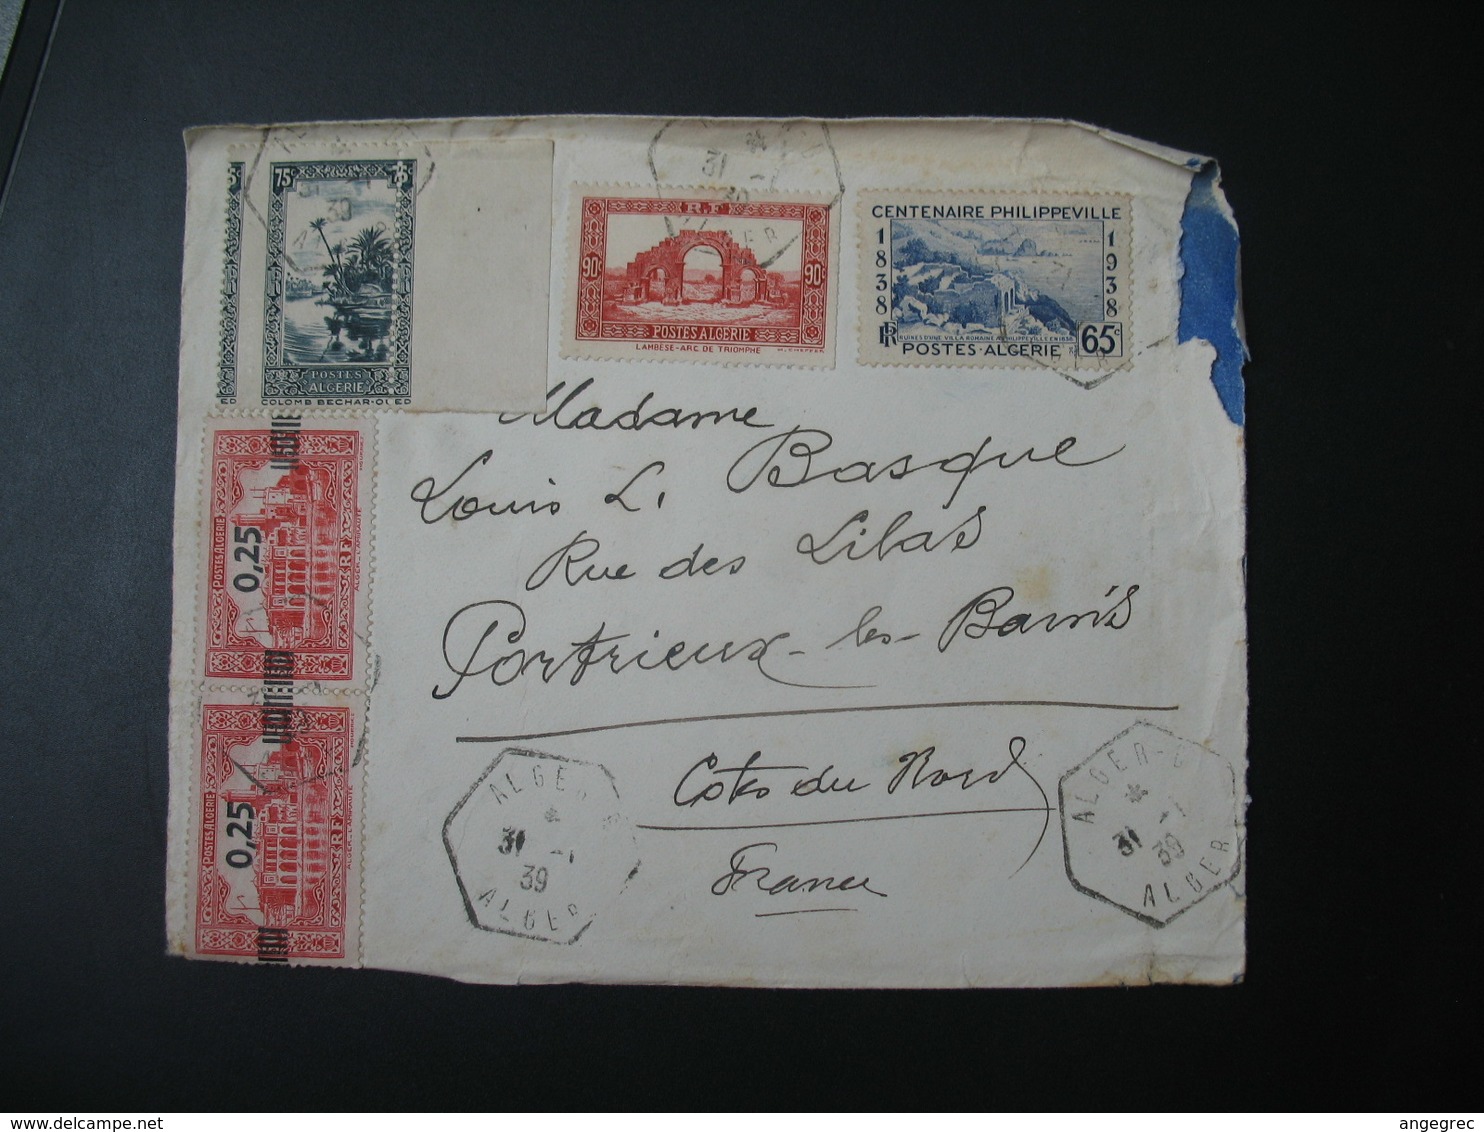 75c
POSTES
ALGÉRIE
COLOMB BECHAR-OUED
R.F
90c
90c
POSTES ALGERIE
LAMBÈSE-ARC DE TRIOMPHE
CENTENAIRE PHILIPPEVILLE
1838
1938
RUINES D'UNE VILLA ROMAINE A PHILIPPEVILLE EN 1838
RF
65c
POSTES-ALGERIE
31 -1
39
ALGER
POSTES ALGERIE
0,25
RF
ALGER-L'AMIRAUTÉ
POSTES ALGERIE
0,25
RF
ALGER-L'AMIRAUTÉ
Madame
Louis L. Basque
Rue des Lilas
Portrieux-les-Bains
Côtes du Nord
France
ALGER
31 -1
39
ALGER
ALGER-
31 -1
39
ALGER
www.delcampe.net
angegrec